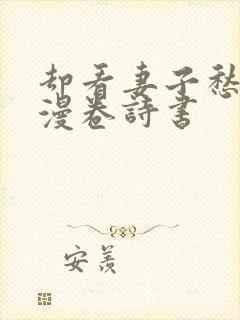 却看妻子愁
漫卷詩書
安羨